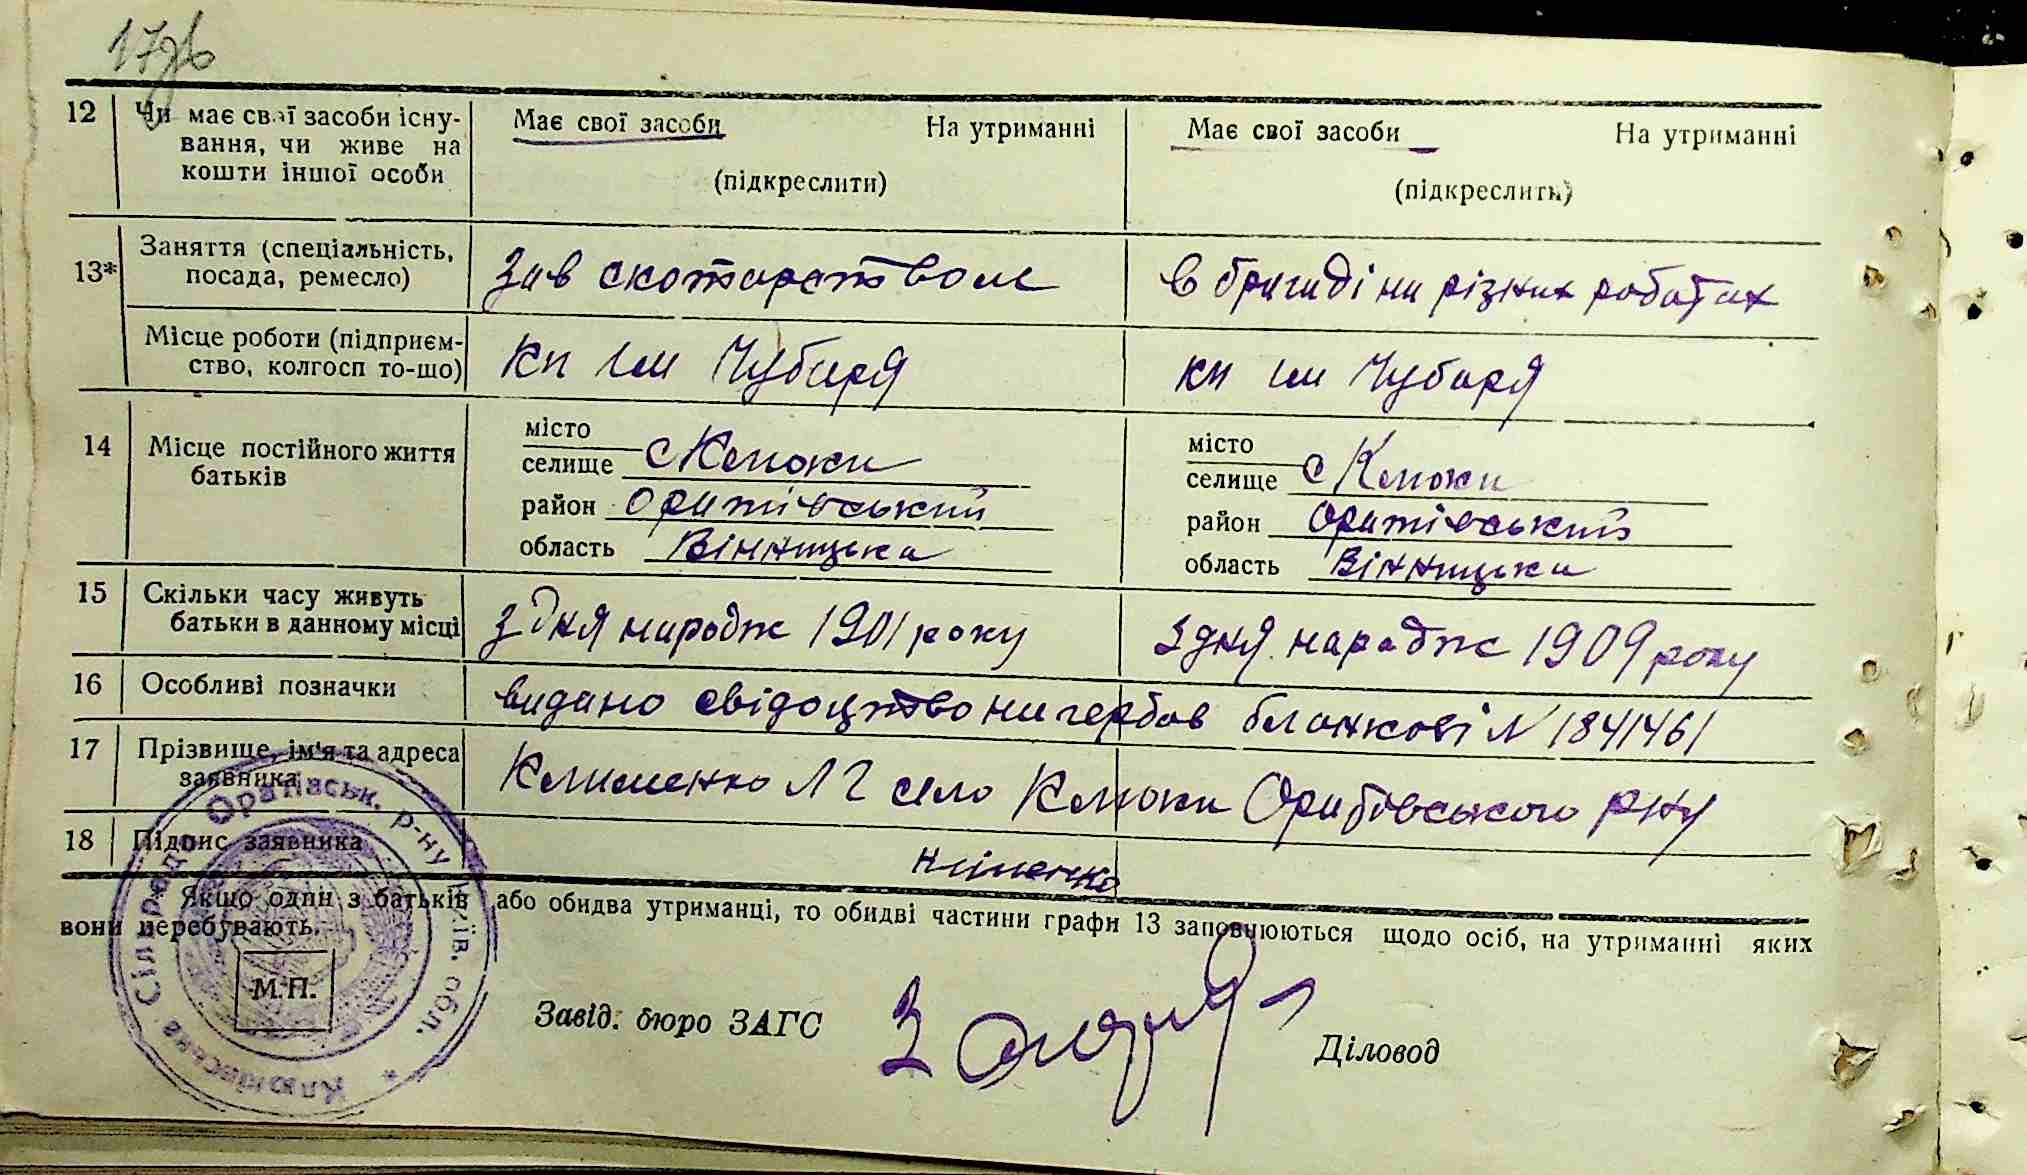 17зв
12 Чи має свої засоби існу-
вання, чи живе на
кошти іншої особи
Має свої засоби На утриманні
(підкреслити)
Має свої засоби На утриманні
(підкреслить)
13* Заняття (спеціальність,
посада, ремесло)
Зав скотарством
в бригаді на різних роботах
Місце роботи (підприєм-
ство, колгосп то-що)
кп ім Чубаря
кп ім Чубаря
14 Місце постійного життя
батьків
місто
селище с Клюки
район Оратівський
область Вінницька
місто
селище с Клюки
район Оратівський
область Вінницька
15 Скільки часу живуть
батьки в данному місці
з дня народж 1901 року
з дня народж 1909 року
16 Особливі позначки
видано свідоцтво на гербов бланкові N 1841461
17 Прізвище, ім'я та адреса
заявника
Клименко Л Г село Клюки Оратівського рну
18 Підпис заявника
Якщо один з батьків або обидва утриманці, то обидві частини графи 13 заповнюються щодо осіб, на утриманні яких
вони перебувають.
М.П.
Сільрада Оратівськ. р-ну Київ. обл. *
Завід. бюро ЗАГС
Діловод